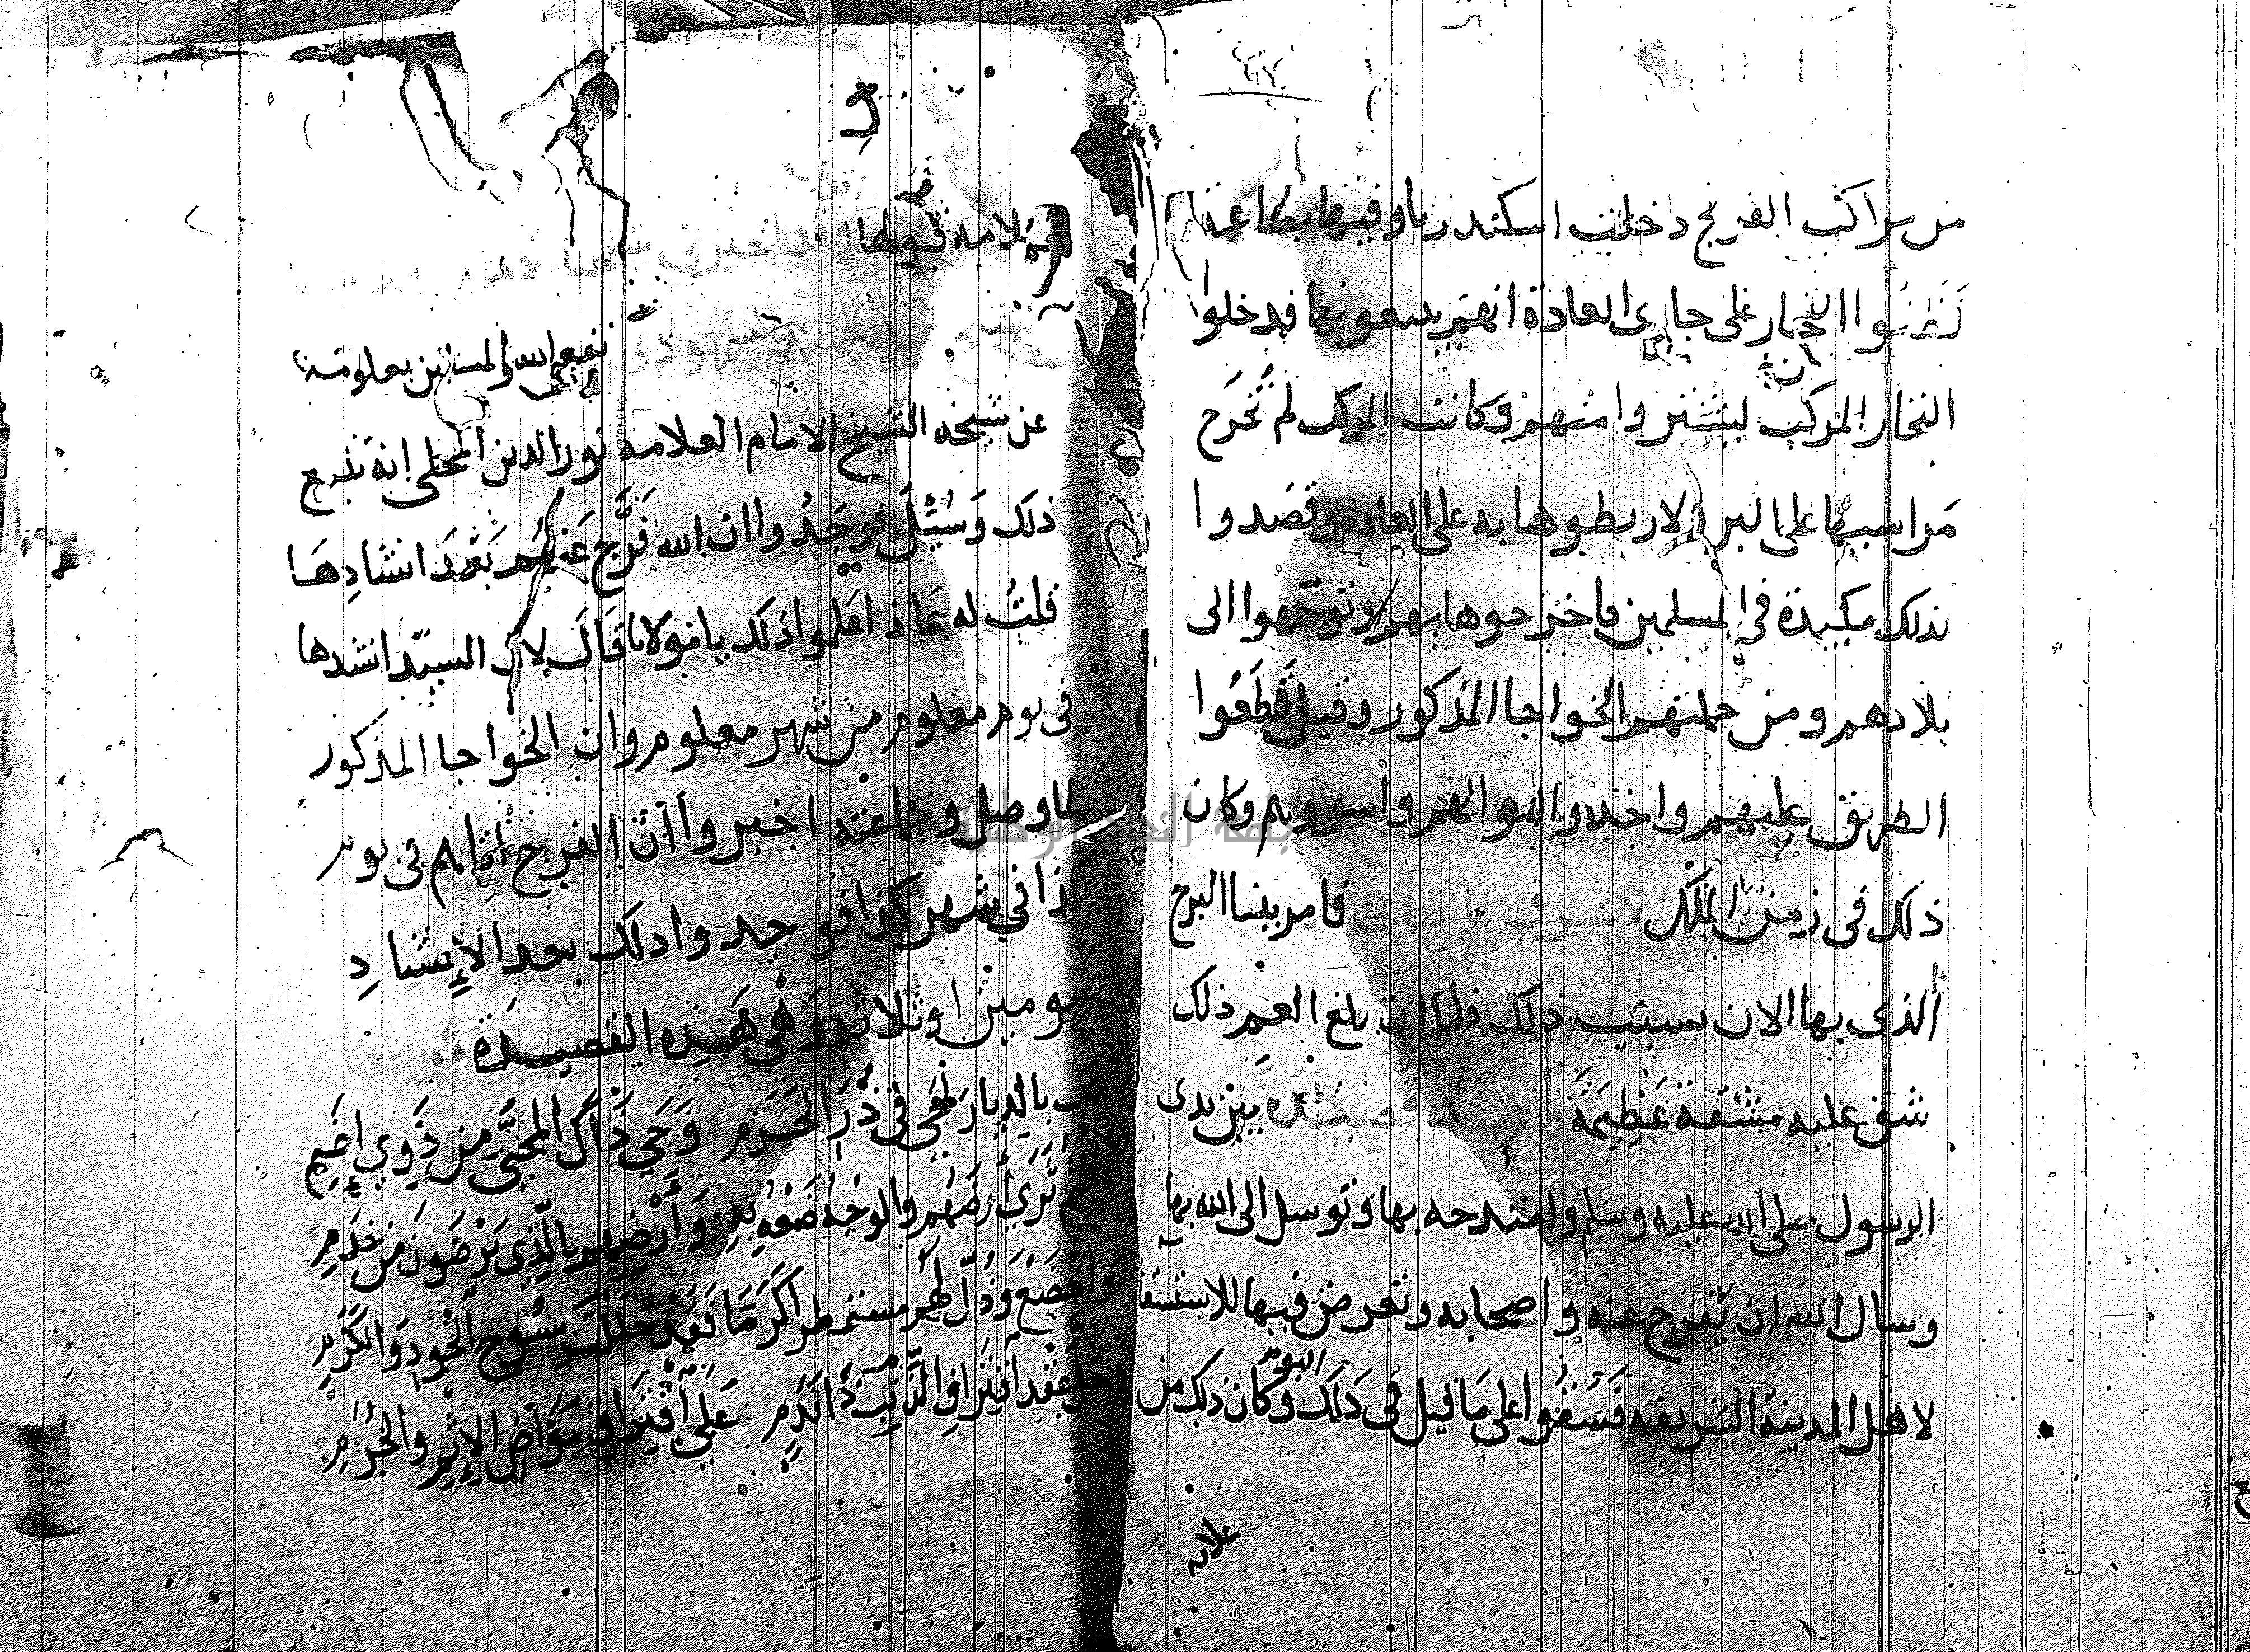 من مراكب الفرنج دخلت اسكندريا وفيها بضاعة
فظنوا التجار على جارى العادة انهم يبيعونها فدخلوا
التجار المركب ليشتروا منهم وكانت المركب لم تخرج
مراسيها على البر ولا ربطوها به على العاده وقصدوا
بذلك مكيدة في المسلمين فاخرجوها بهم وتوجهوا الى
بلادهم ومن جملتهم الخواجا المذكور وقيل قطعوا
الطريق عليهم واخذوا اموالهم واسروهم وكان
ذلك في زمن الملك فامر ببنا البرج
الذى بها الان بسبب ذلك فلما ان بلغ العم ذلك
شق عليه مشقة عظيمة بين يدى
الرسول صلى الله عليه وسلم وامتدحه بها وتوسل الى الله بها
وسال الله ان يفرج عنه واصحابه وتعرض فيها للاستسقا
لاهل المدينة الشريفه فسقوا على ما قيل في ذلك اليوم وكان ذلك من
علامه
علامه قبولها
نفع الله المسلمين بعلومه
عن شيخه الشيخ الامام العلامه نور الدين المحلى انه تتبع
ذلك وسئل فوجدوا ان الله فرج عنهم بعد انشادها
قلت له بماذا علموا ذلك يا مولانا قال لان السيد انشدها
في يوم معلوم من شهر معلوم وان الخواجا المذكور
لما وصل وجماعته اخبروا ان الفرج اتاهم في يوم
كذا في شهر كذا فوجدوا ذلك بعد الانشاد
بيومين او ثلاثه وهى هذه القصيدة
قف بالديار لحى في ذرا الحرم وحي ذاك المحيا من ذوي اضم
والثم ثرى ارضهم والوجه ضعه به وارضهم بالذى يرضون من خدم
واخضع وذل لهم مستمطرا كرما فقد حللت بسوح الجود والكرم